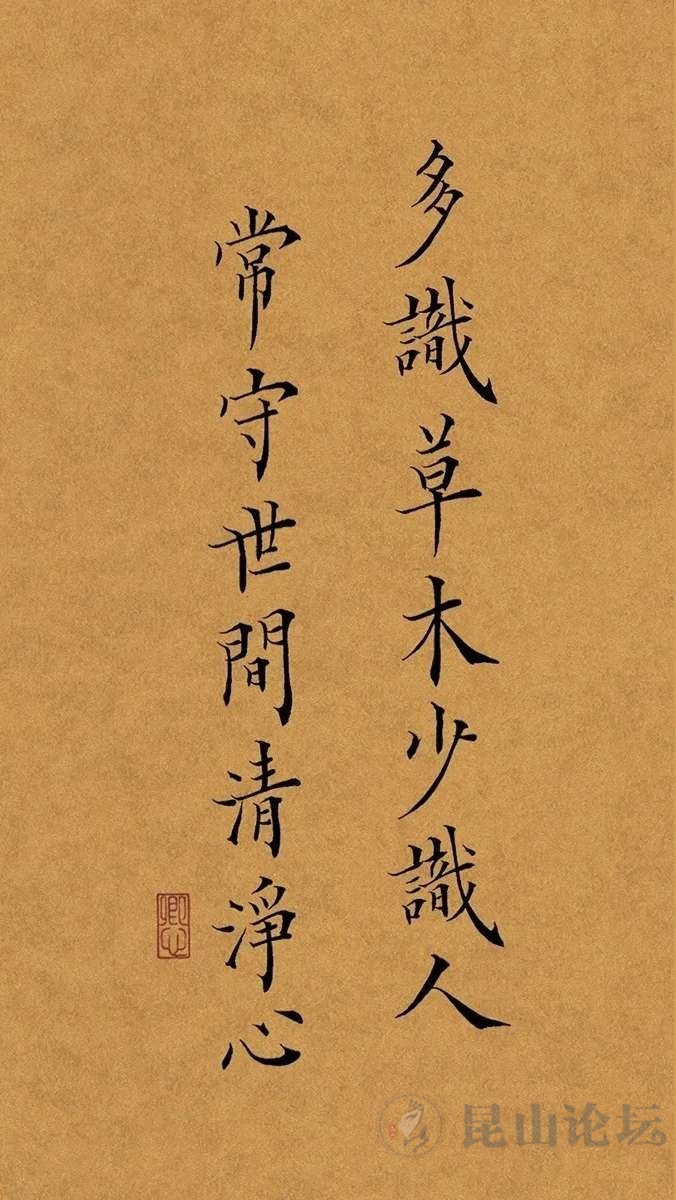 多識草木少識人
常守世間清淨心
昆山论坛